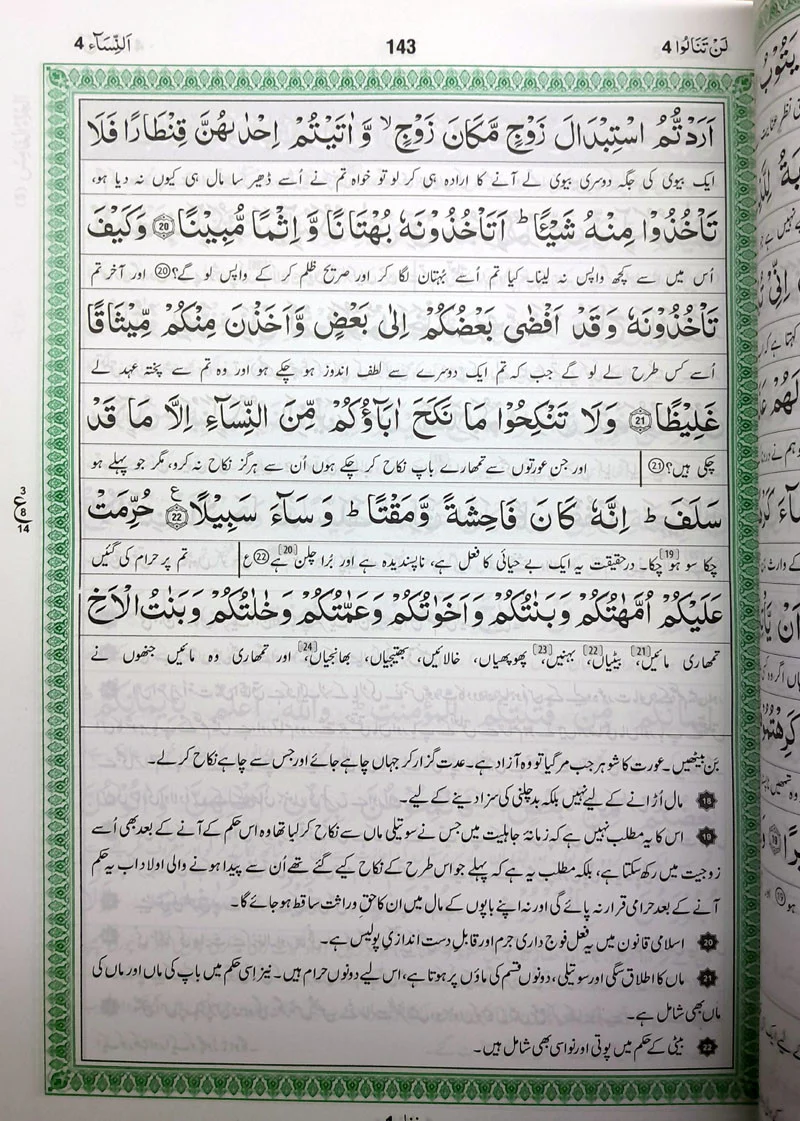 لَنْ تَنَالُوا 4
143
اَلنِّسَآء 4
اَرَدْتُّمُ اسْتِبْدَالَ زَوْجٍ مَّكَانَ زَوْجٍ ۙ وَّاٰتَيْتُمْ اِحْدٰىهُنَّ قِنْطَارًا فَلَا
ایک بیوی کی جگہ دوسری بیوی لے آنے کا ارادہ ہی کر لو تو خواہ تم نے اُسے ڈھیر سا مال ہی کیوں نہ دیا ہو،
تَاْخُذُوْا مِنْهُ شَيْـًٔا ؕ اَتَاْخُذُوْنَهٗ بُهْتَانًا وَّ اِثْمًا مُّبِيْنًا ⑳ وَكَيْفَ
اُس میں سے کچھ واپس نہ لینا۔ کیا تم اُسے بُہتان لگا کر اور صریح ظلم کر کے واپس لو گے؟ ⑳ اور آخر تم
تَاْخُذُوْنَهٗ وَ قَدْ اَفْضٰى بَعْضُكُمْ اِلٰى بَعْضٍ وَّاَخَذْنَ مِنْكُمْ مِّيْثَاقًا
اُسے کس طرح لے لو گے جب کہ تم ایک دوسرے سے لطف اندوز ہو چکے ہو اور وہ تم سے پختہ عہد لے
غَلِيْظًا ㉑ وَلَا تَنْكِحُوْا مَا نَكَحَ اٰبَآؤُكُمْ مِّنَ النِّسَآءِ اِلَّا مَا قَدْ
چکی ہیں؟ ㉑ اور جن عورتوں سے تمھارے باپ نکاح کر چکے ہوں اُن سے ہرگز نکاح نہ کرو، مگر جو پہلے ہو
سَلَفَ ؕ اِنَّهٗ كَانَ فَاحِشَةً وَّمَقْتًا ؕ وَ سَآءَ سَبِيْلًا ㉒ ع حُرِّمَتْ
چکا سو ہو [19] چکا۔ درحقیقت یہ ایک بے حیائی کا فعل ہے، ناپسندیدہ ہے اور بُرا چلن [20] ہے ㉒ ع تم پر حرام کی گئیں
عَلَيْكُمْ اُمَّهٰتُكُمْ وَبَنٰتُكُمْ وَاَخَوٰتُكُمْ وَعَمّٰتُكُمْ وَخٰلٰتُكُمْ وَبَنٰتُ الْاَخِ
تمھاری مائیں [21]، بیٹیاں [22]، بہنیں [23]، پھوپھیاں، خالائیں، بھتیجیاں، بھانجیاں [24]، اور تمھاری وہ مائیں جنھوں نے
3
ع
8
14
بَن بیٹھیں۔ عورت کا شوہر جب مر گیا تو وہ آزاد ہے۔ عدت گزار کر جہاں چاہے جائے اور جس سے چاہے نکاح کر لے۔
18 مال اُڑانے کے لیے نہیں بلکہ بدچلنی کی سزا دینے کے لیے۔
19 اس کا یہ مطلب نہیں ہے کہ زمانۂ جاہلیت میں جس نے سوتیلی ماں سے نکاح کر لیا تھا وہ اس حکم کے آنے کے بعد بھی اُسے
زوجیت میں رکھ سکتا ہے، بلکہ مطلب یہ ہے کہ پہلے جو اس طرح کے نکاح کیے گئے تھے اُن سے پیدا ہونے والی اولاد اب یہ حکم
آنے کے بعد حرامی قرار نہ پائے گی اور نہ اپنے باپوں کے مال میں ان کا حقِ وراثت ساقط ہو جائے گا۔
20 اسلامی قانون میں یہ فعل فوجداری جرم اور قابلِ دست اندازیِ پولیس ہے۔
21 ماں کا اطلاق سگی اور سوتیلی، دونوں قسم کی ماؤں پر ہوتا ہے، اس لیے دونوں حرام ہیں۔ نیز اسی حکم میں باپ کی ماں اور ماں کی
ماں بھی شامل ہے۔
22 بیٹی کے حکم میں پوتی اور نواسی بھی شامل ہیں۔